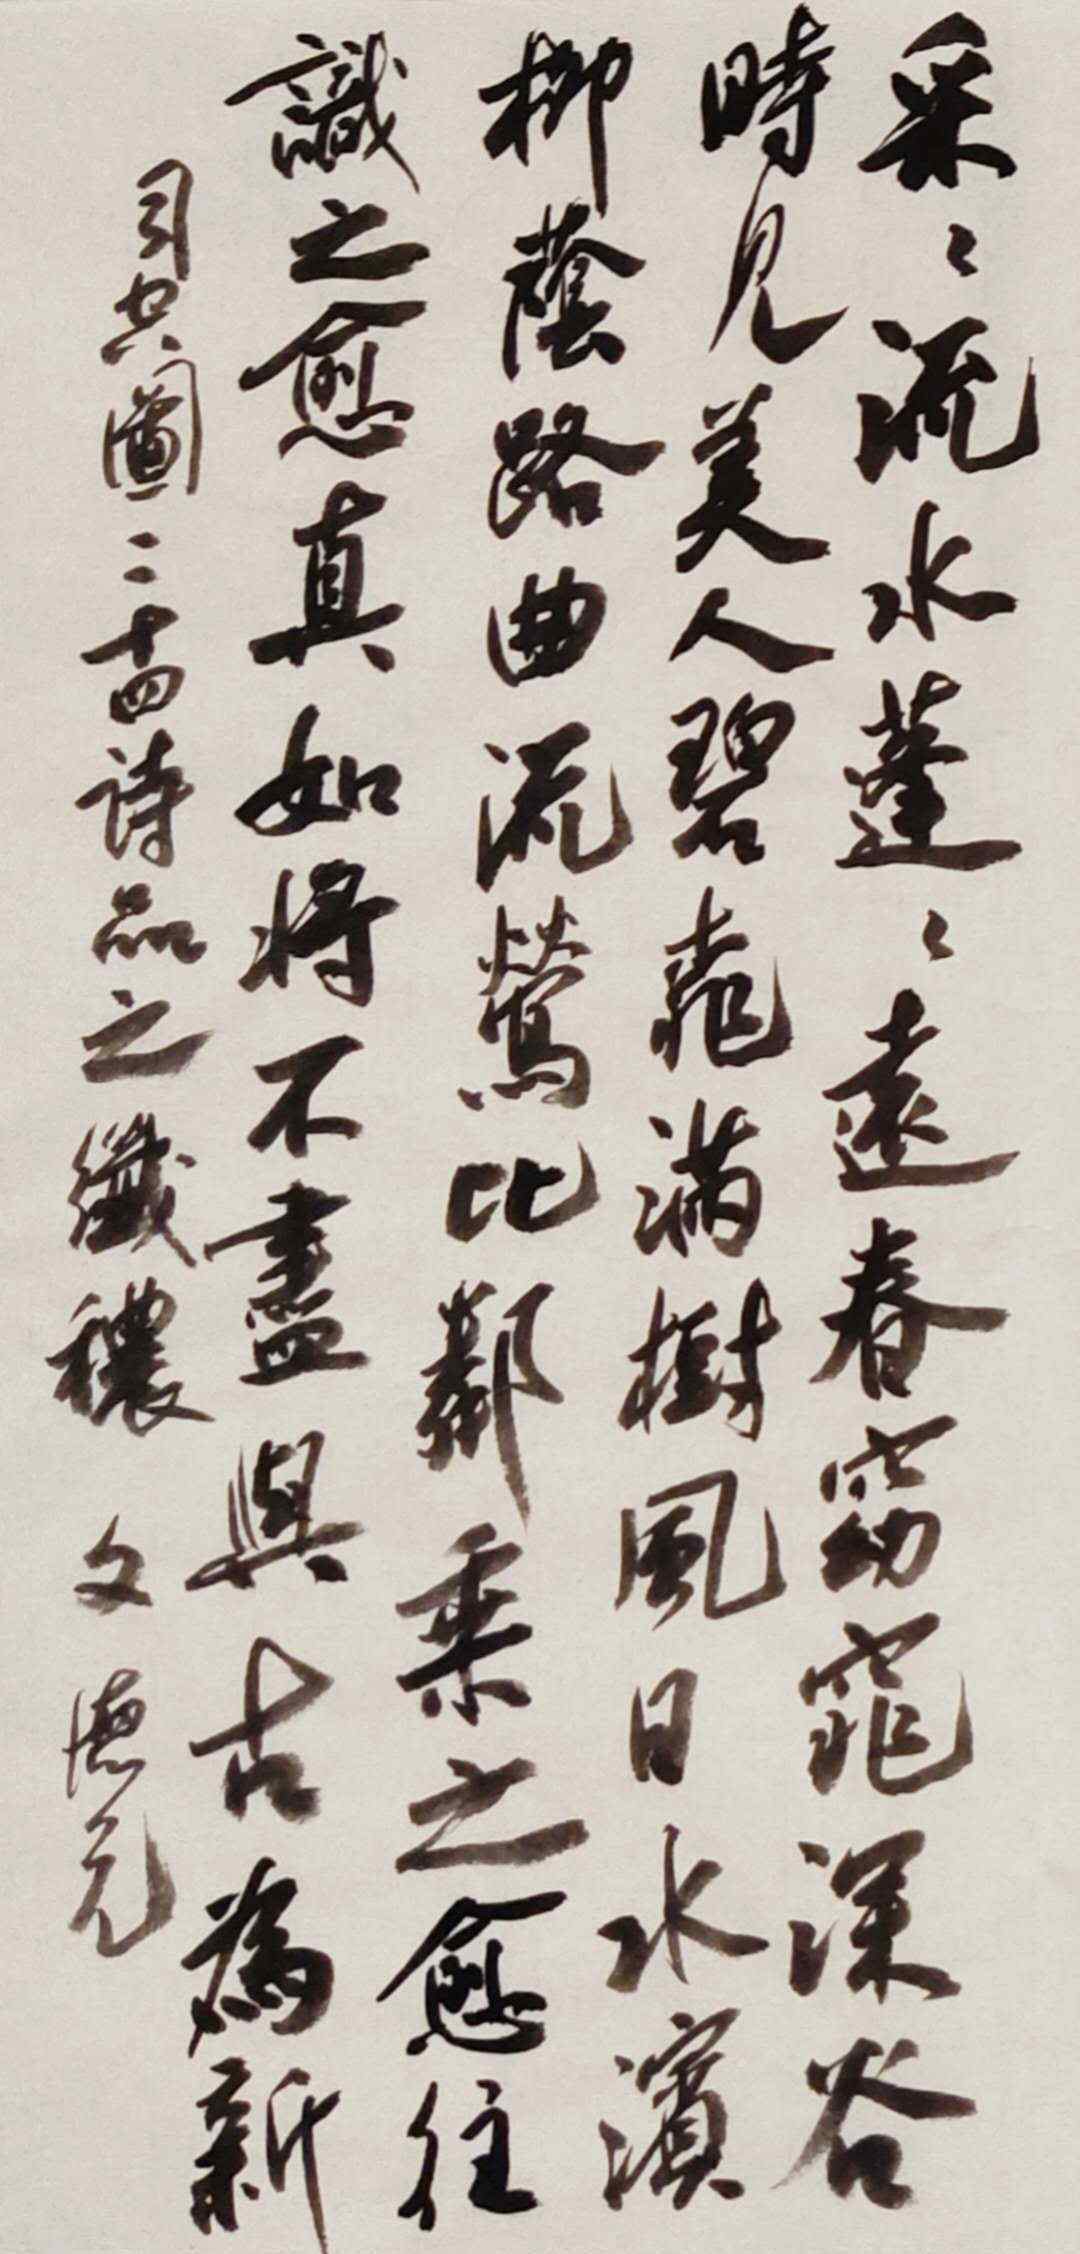 采〻流水蓬〻遠春窈窕深谷
時見美人碧桃滿樹風日水濱
柳蔭路曲流鶯比鄰乘之愈往
識之愈真如將不盡與古為新
司空圖二十四詩品之纖穠 文德元